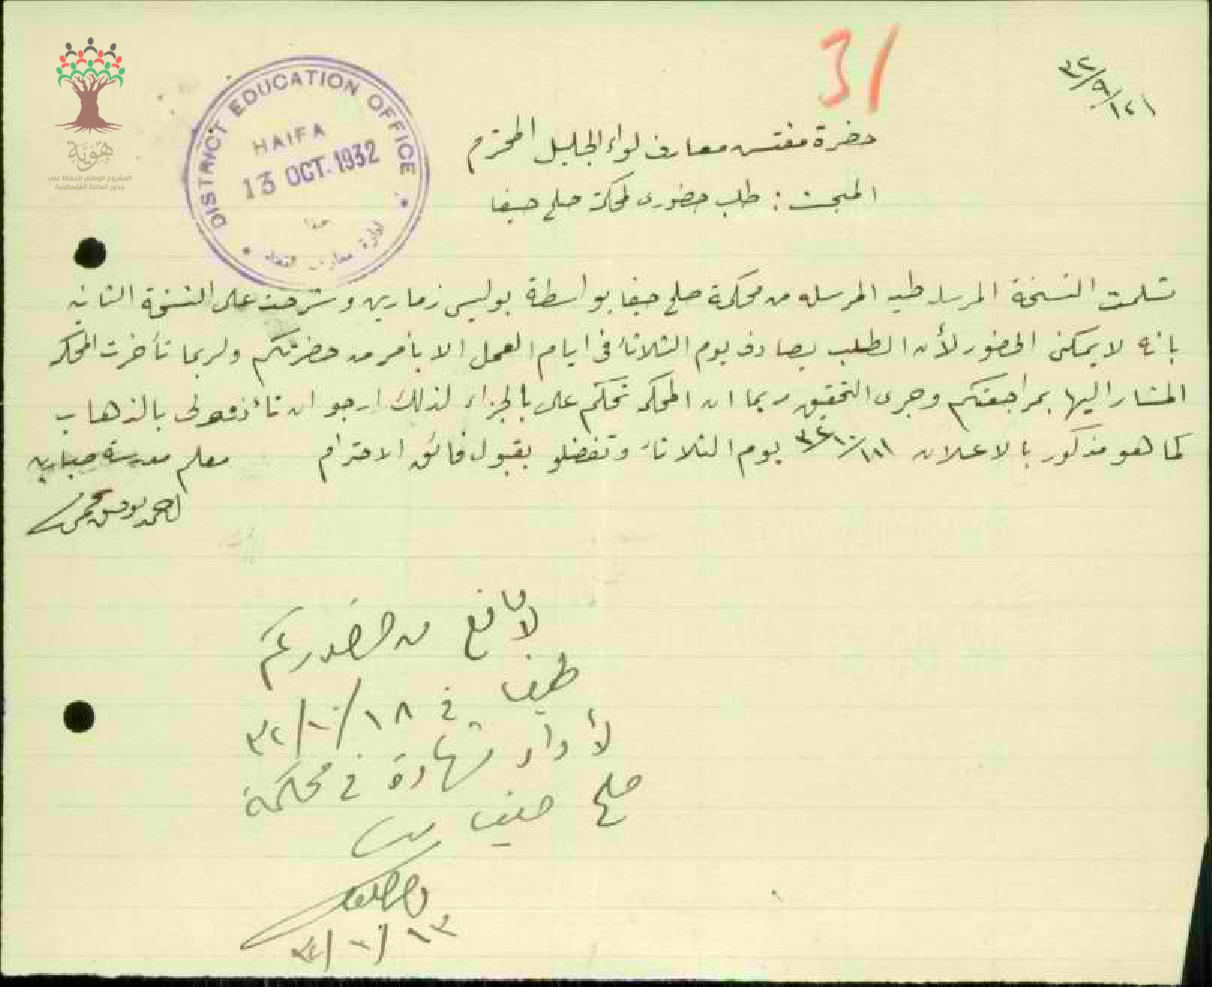 هوية
المشروع الوطني للحفاظ على
جذور العائلة الفلسطينية
DISTRICT EDUCATION OFFICE
HAIFA
13 OCT. 1932
حيفا
ادارة معارف
31
حضرة مفتش معارف لواء الجليل المحترم
المبحث : طلب حضوري لمحكمة صلح حيفا
تسلمت النسخة المرسلة طيه المرسله من محكمة صلح حيفا بواسطة بوليس زمارين وشرحت على النسخة الثانيه
بانه لا يمكنني الحضور لأن الطلب يصادف يوم الثلاثاء في ايام العمل الا بأمر من حضرتكم ولربما تأخرت المحكمه
المشار اليها بمراجعتكم وجرى التحقيق ربما ان المحكمه تحكم علي بالجزاء لذلك ارجو ان تأذنوا لي بالذهاب
كما هو مذكور بالاعلان ١٨/١٠/٣٢ يوم الثلاثاء وتفضلو بقبول فائق الاحترام معلم مدرسة صبارين
احمد يوسف
لا مانع من حضوركم
حيفا في ١٨/١٠/٣٢
لأداء شهادة في محكمة
صلح حيفا